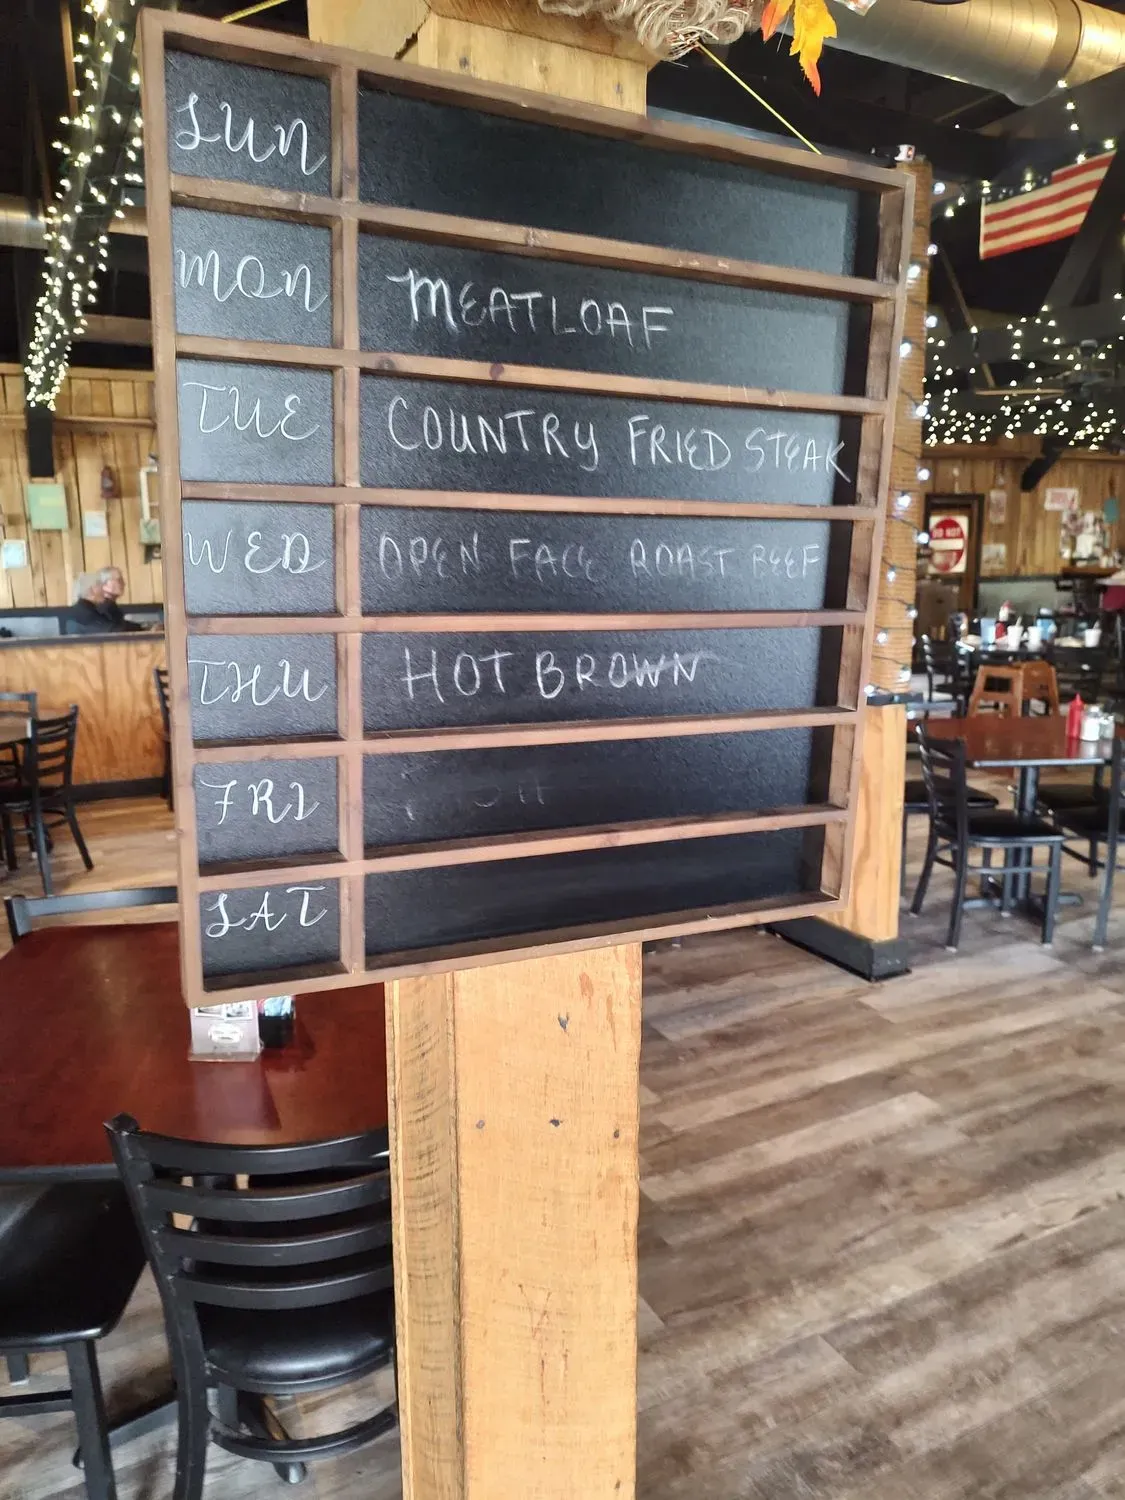 SUN
MON MEATLOAF
TUE COUNTRY FRIED STEAK
WED OPEN FACE ROAST BEEF
THU HOT BROWN
FRI
SAT
DO NOT